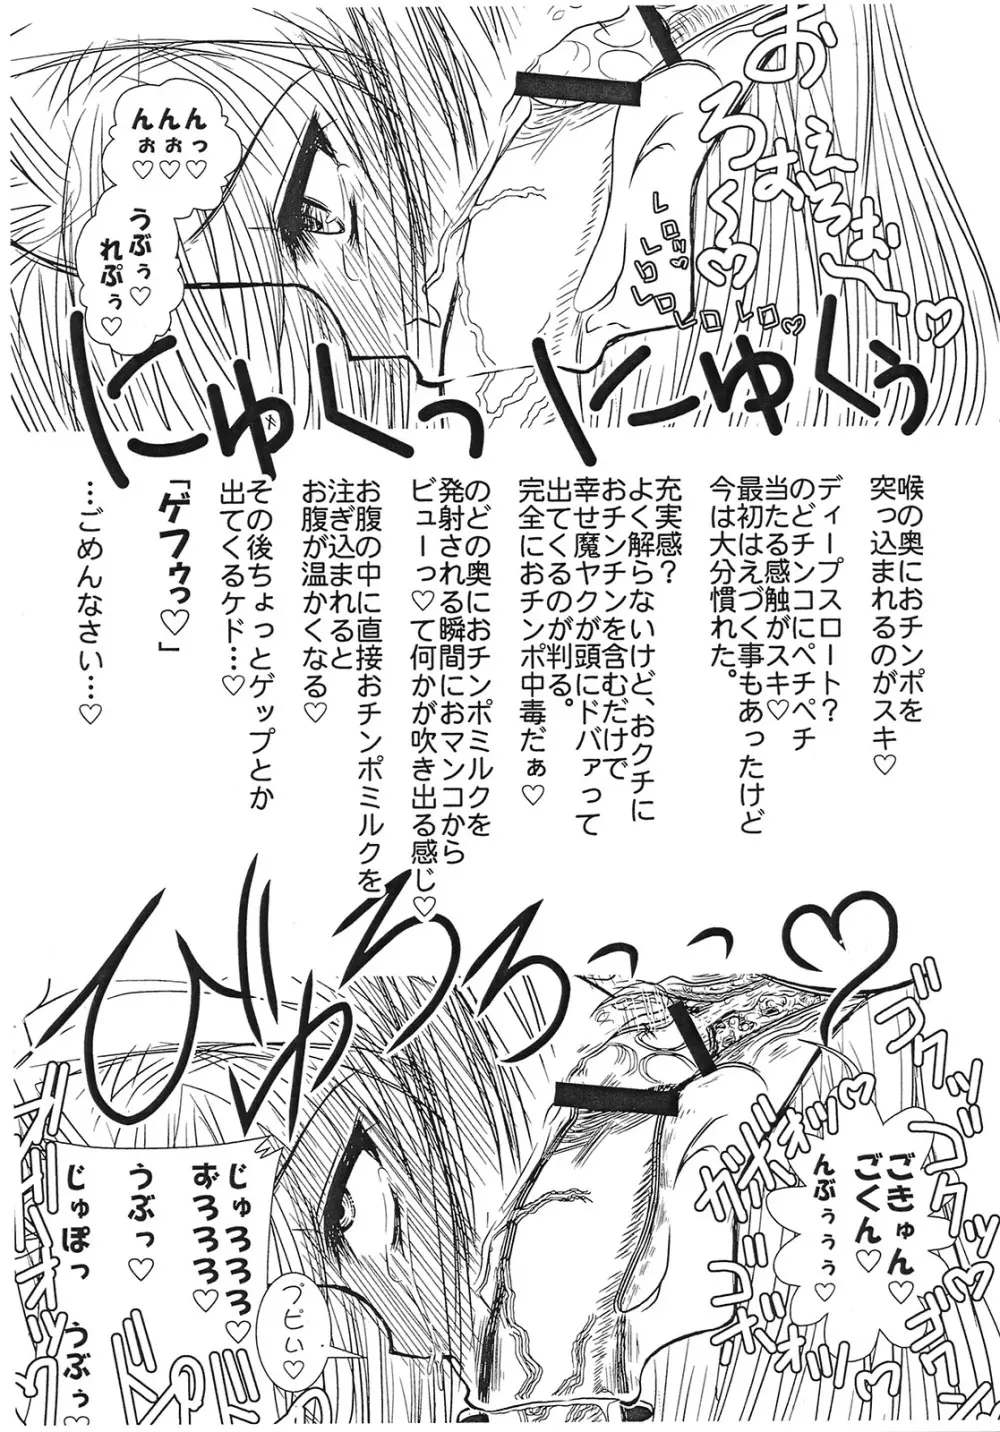 んっ♡
んぉっ♡
んぉ♡
うぶぅ♡
れぷぅ♡
おえっ
ろぉえろぉ〜♡
レロッ レロレロレロ♡
にゅくっ にゅくぅ
喉の奥におチンポを
突っ込まれるのがスキ♡
ディープスロート?
のどチンコにペチペチ
当たる感触がスキ♡
最初はえづく事もあったけど
今は大分慣れた。
充実感?
よく解らないけど、おクチに
おチンチンを含むだけで
幸せ魔ヤクが頭にドバァって
出てくるのが判る。
完全におチンポ中毒だぁ♡
のどの奥におチンポミルクを
発射される瞬間におマンコから
ビューっ♡て何かが吹き出る感じ♡
お腹の中に直接おチンポミルクを
注ぎ込まれると
お腹が温かくなる♡
その後ちょっとゲップとか
出てくるケド…♡
「ゲフゥっ♡」
…ごめんなさい…♡
びゅろろっっ♡
ゴクッ
ゴクッ
ごきゅん♡
ごくん♡
んぶぅぅぅ♡
じゅろろろ♡
ずろろろろ♡
うぶっ♡
じゅぽっ うぶぅ♡
プピぃ♡